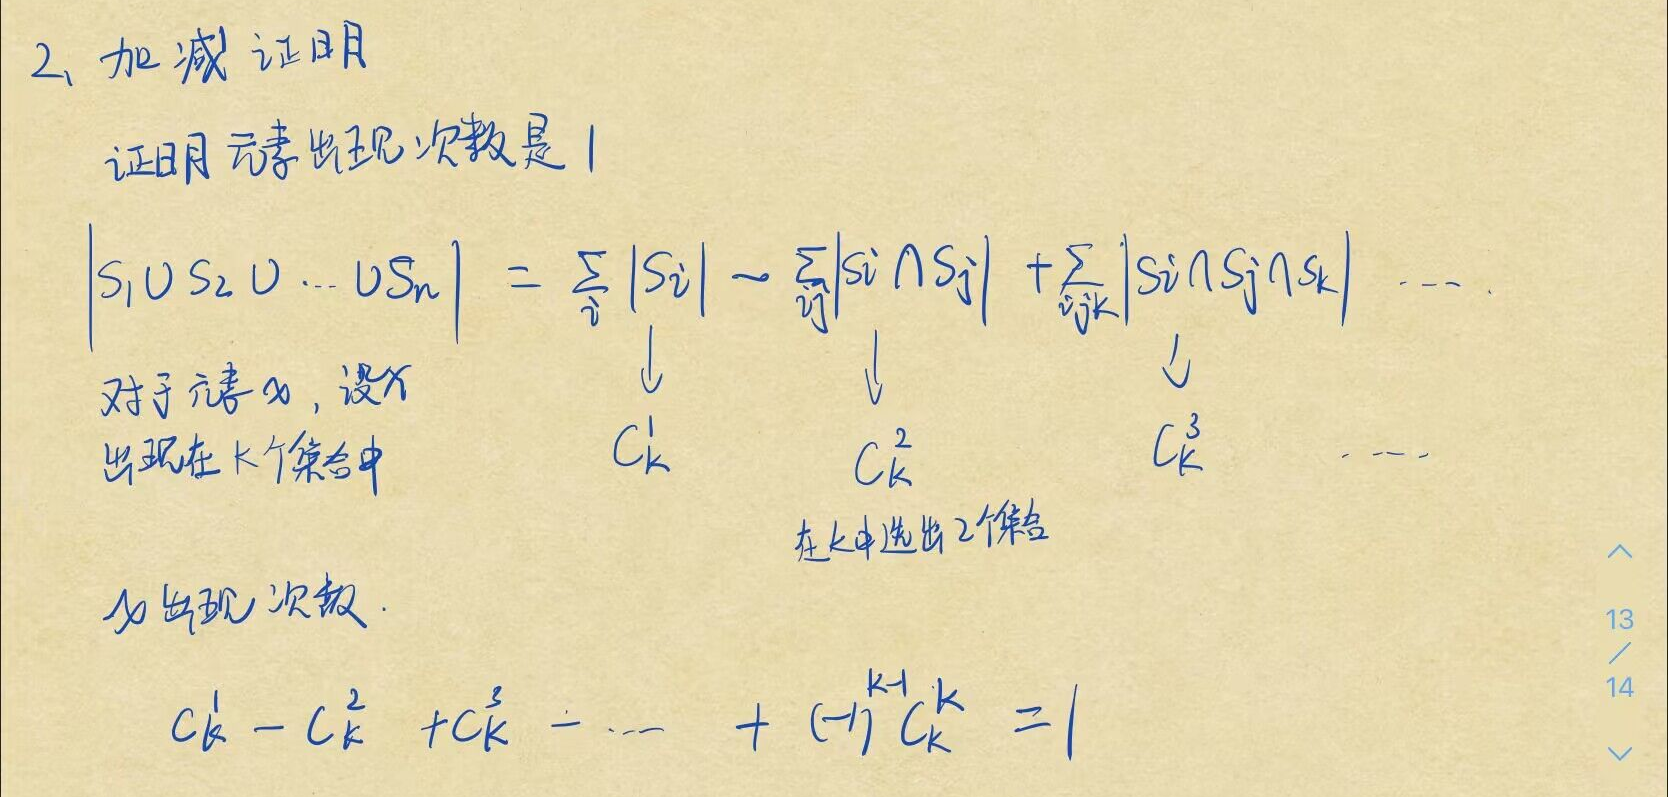 2、加减证明
证明元素出现次数是1
|S₁∪S₂∪...∪Sₙ| = ∑ᵢ|Sᵢ| - ∑ᵢⱼ|Sᵢ∩Sⱼ| + ∑ᵢⱼₖ|Sᵢ∩Sⱼ∩Sₖ| ....
对于元素x,设x
出现在k个集合中
Cₖ¹ Cₖ² Cₖ³ ....
在k中选出2个集合
x出现次数.
Cₖ¹ - Cₖ² + Cₖ³ - .... + (-1)ᵏ⁻¹ Cₖᵏ = 1
13
/
14